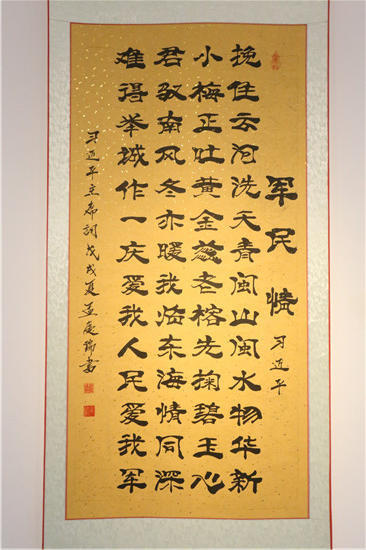 军民情
习近平
挽住云河洗天青闽山闽水物华新
小梅正吐黄金蕊老榕先掬碧玉心
君驭南风冬亦暖我临东海情同深
难得举城作一庆爱我人民爱我军
习近平主席词戊戌夏孟瑞书